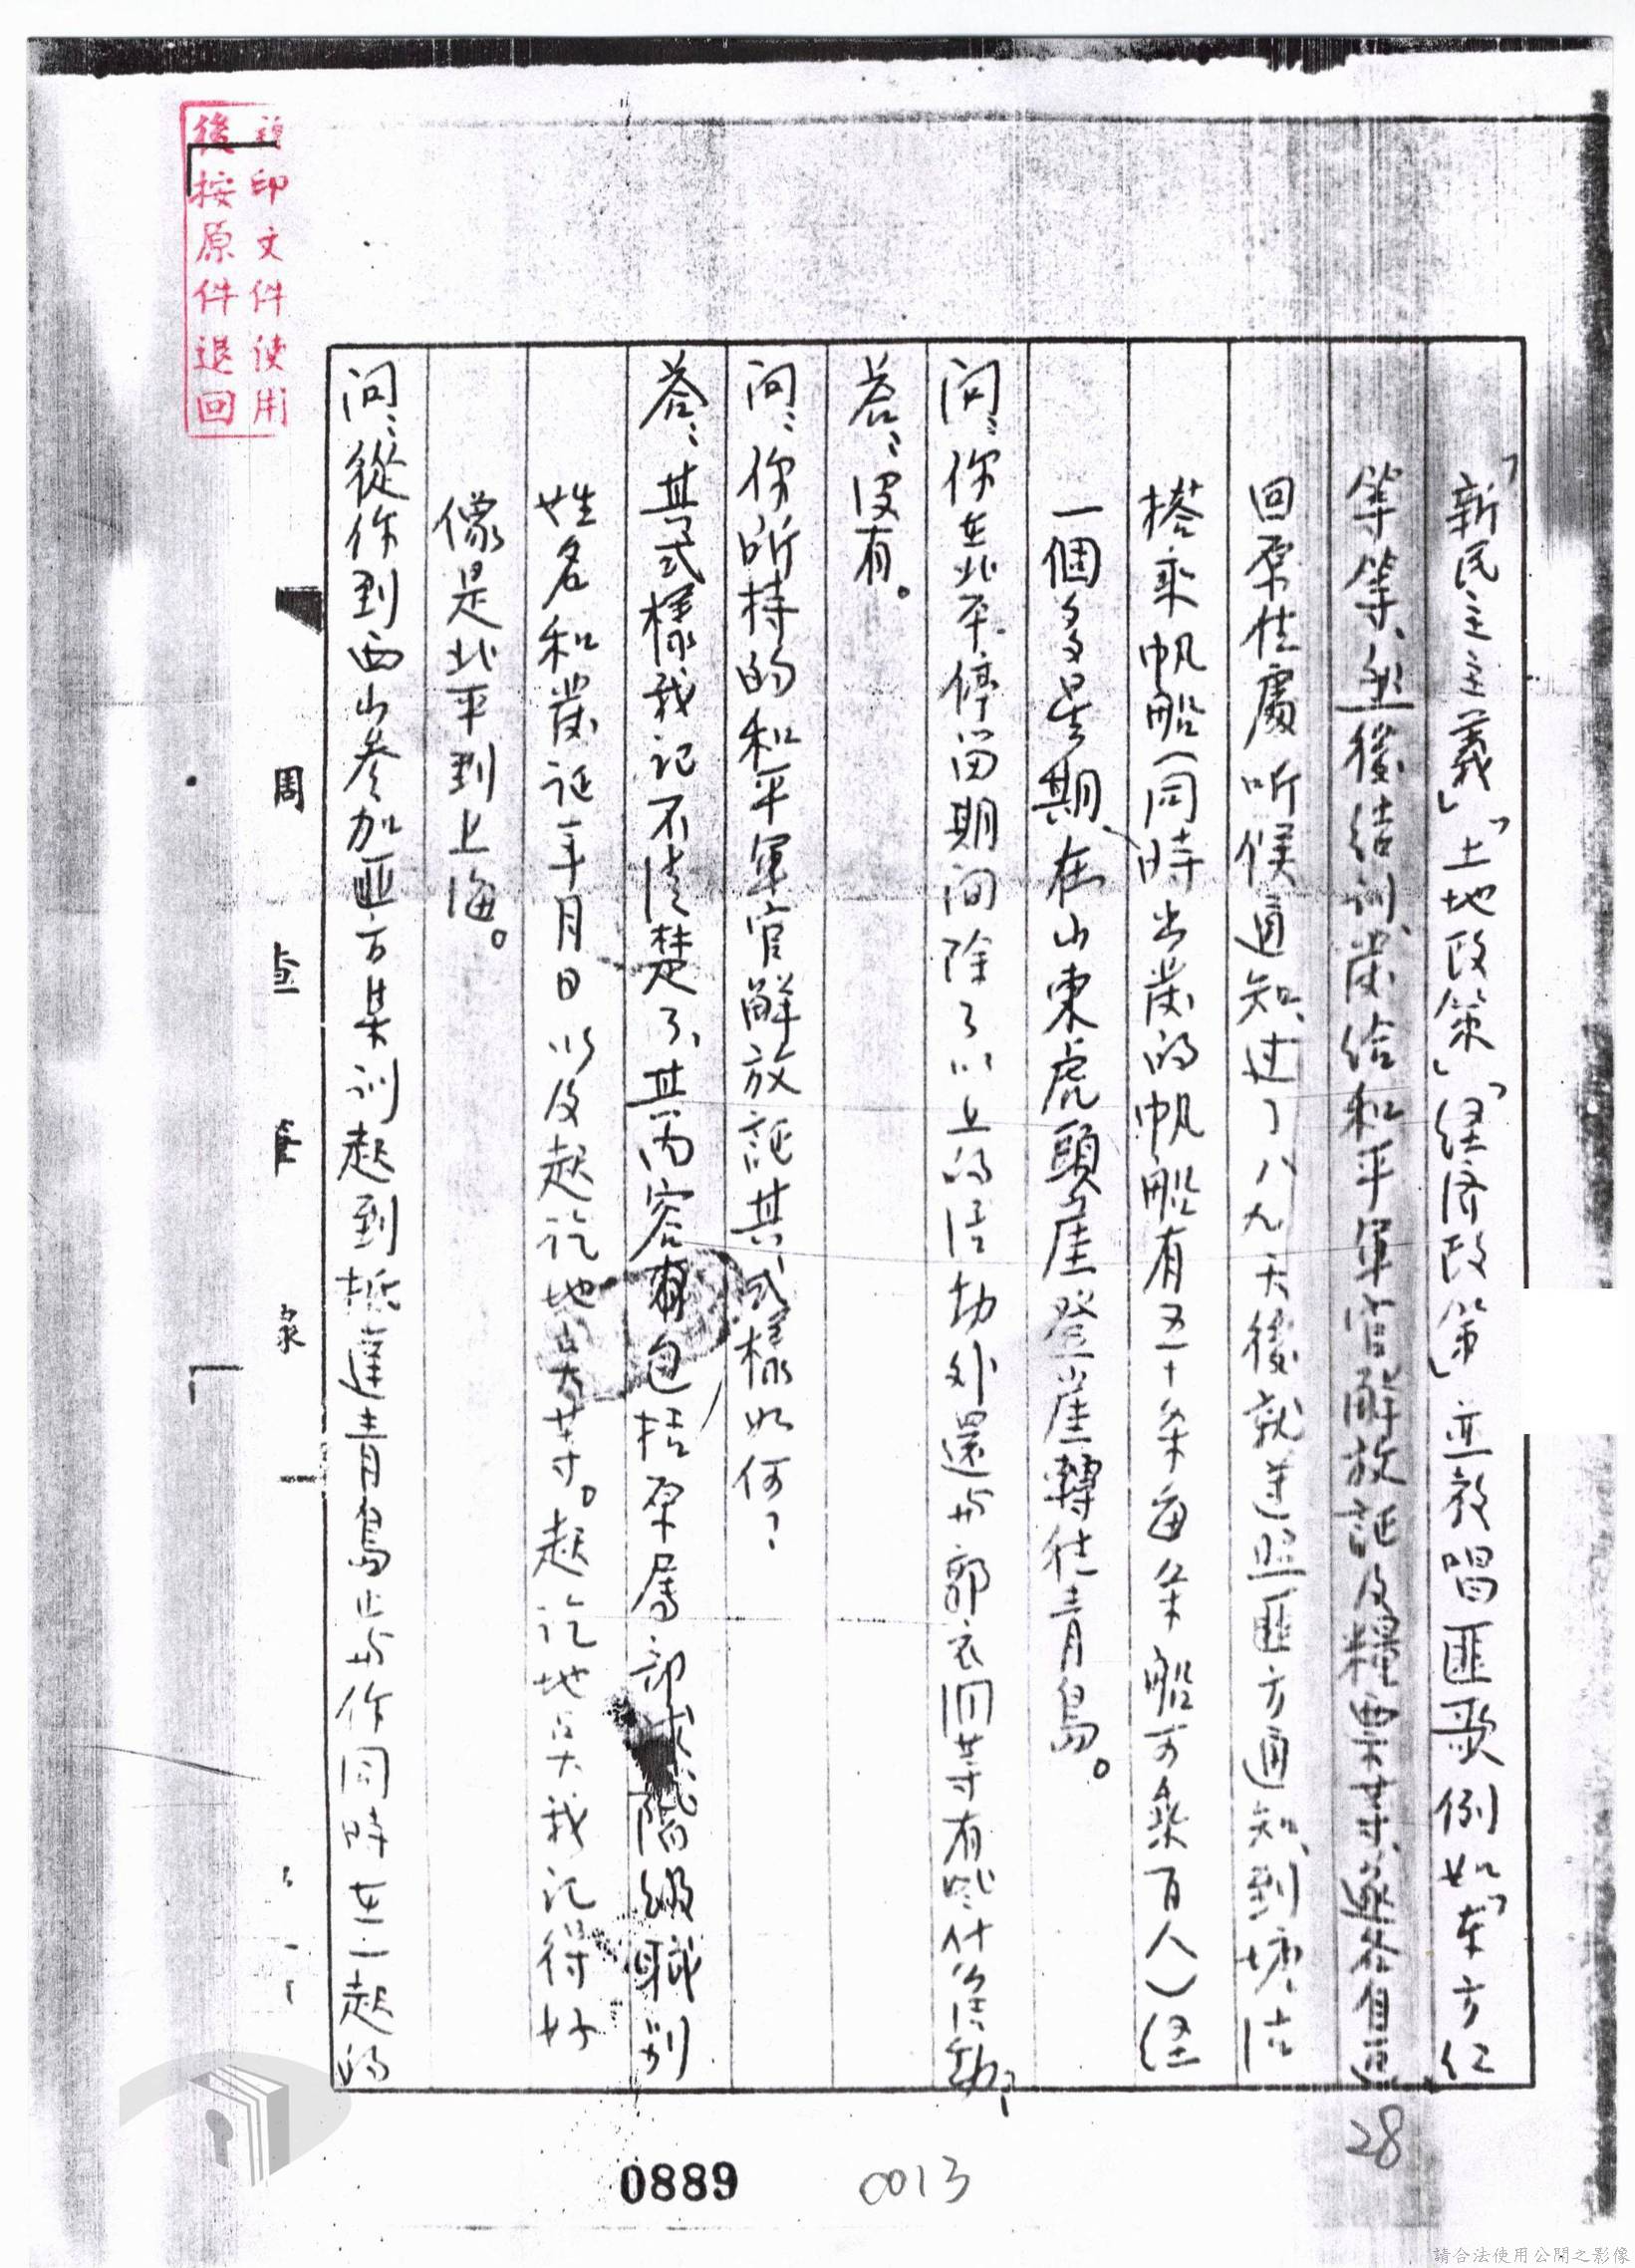 「新民主主義」「土地政策」「经济政策」並教唱匪歌例如「东方红
等等、然後结训、发给和平軍官解放証及糧票等、
回原住處听候通知、过了八九天後就送照匪方通知、到塘沽
搭乘帆船(同時出发的帆船有五十条每条船可乘百人)经
一個多星期、在山東虎頭崖登崖轉往青島。
问:你在北平停留期间除了以上的活动外還与郭衣洞等有些什么活動?
荅:没有。
问:你所持的和平軍官解放証其式樣如何?
荅:其式樣我记不清楚了、其内容有包括原属部隊階級職别
姓名和发证年月日以及起讫地点等。起讫地点我记得好
像是北平到上海。
问:從你到西山參加匪方集训起到抵達青島止与你同時在一起的
周查筆录
印文件使用
後按原件退回
28
0889
0013
請合法使用公開之影像